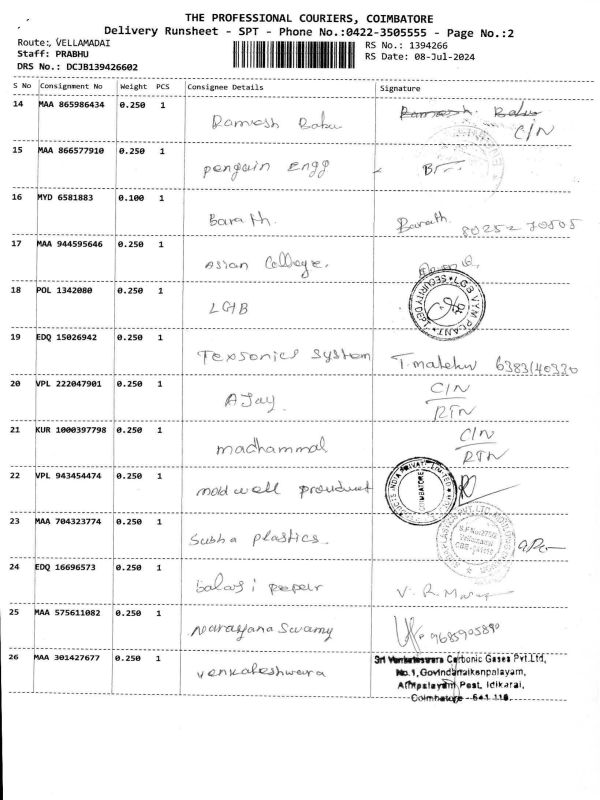 THE PROFESSIONAL COURIERS, COIMBATORE
Delivery Runsheet - SPT - Phone No.:0422-3505555 - Page No.:2
Route: VELLAMADAI
RS No.: 1394266
Staff: PRABHU
RS Date: 08-Jul-2024
DRS No.: DCJB139426602
S No Consignment No Weight PCS Consignee Details Signature
14 MAA 865986434 0.250 1 Ramesh Babu Ramesh Babu
C/N
15 MAA 866577910 0.250 1 penguin Engg
16 MYD 6581883 0.100 1 Barath. Barath. 80252 70505
17 MAA 944595646 0.250 1 Asian College.
18 POL 1342080 0.250 1 LGB L.G.B VYM PLANT SECURITY DEPT
19 EDQ 15026942 0.250 1 Texsonics System 6383140320
20 VPL 222047901 0.250 1 AJay. C/N
RTN
21 KUR 1000397798 0.250 1 madhammal C/N
RTN
22 VPL 943454474 0.250 1 mold well prouduct COIMBATORE
23 MAA 704323774 0.250 1 Subha plastics.
24 EDQ 16696573 0.250 1 balaji peper V. R.
25 MAA 575611082 0.250 1 Narayana Swamy 9685905890
26 MAA 301427677 0.250 1 venkateshwara Sri Venkateswara Carbonic Gases Pvt.Ltd,
No.1,Govindanaikenpalayam,
Attipalayam Post, Idikarai,
Coimbatore - 641 110.